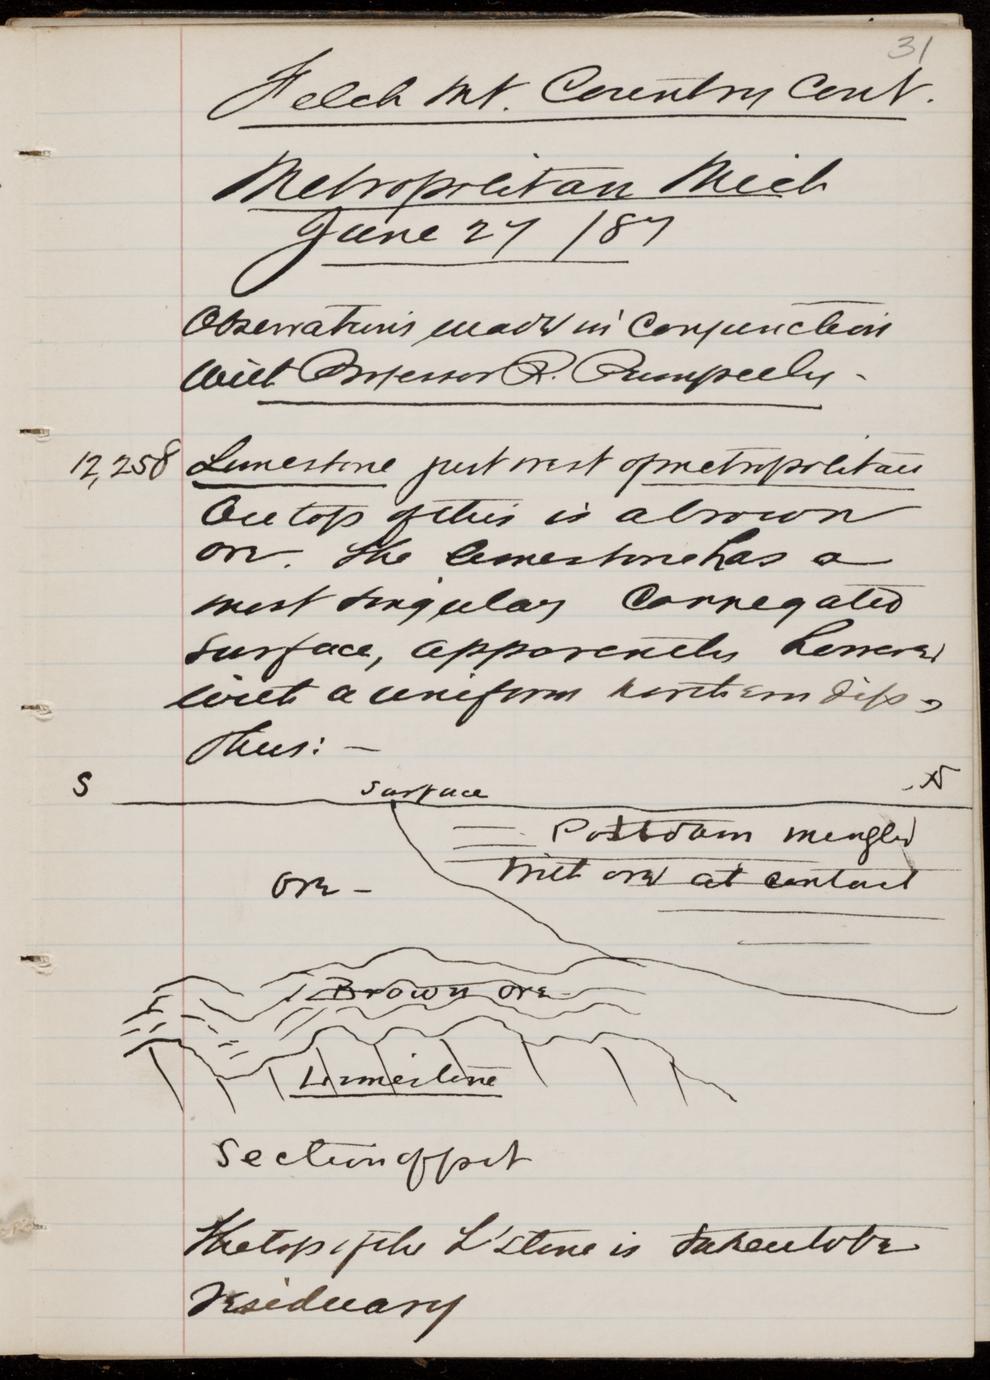 31
Felch Mt. Country Cont.
Metropolitan Mich
June 27 /87
Observations made in Conjunction
With Professor R. Pumpelly -
12,258 Limestone just west of Metropolitan
On top of this is a brown
ore. The limestone has a
most singular Corregated
surface, apparently however
with a uniform northern dip,
thus: —
S Surface N
Potsdam mingled
With ore at contact
Ore -
Brown ore
Limestone
Section of pit
The top of the L'stone is taken to be
residuary